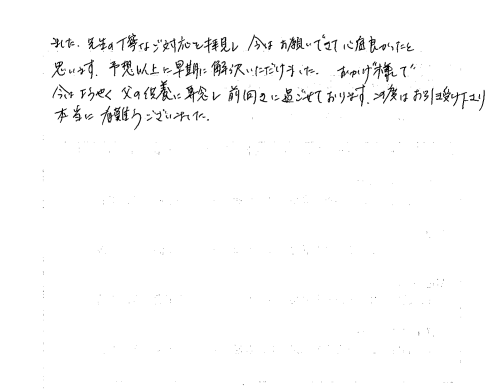 ました。先生の丁寧なご対応を拝見し 今は お願いできて心底良かったと
思います。予想以上に早期に解決いただけました。おかげ様で
今はようやく 父の供養に専念し 前向きに過ごせております。この度はお引き受け下さり
本当に有難うございました。